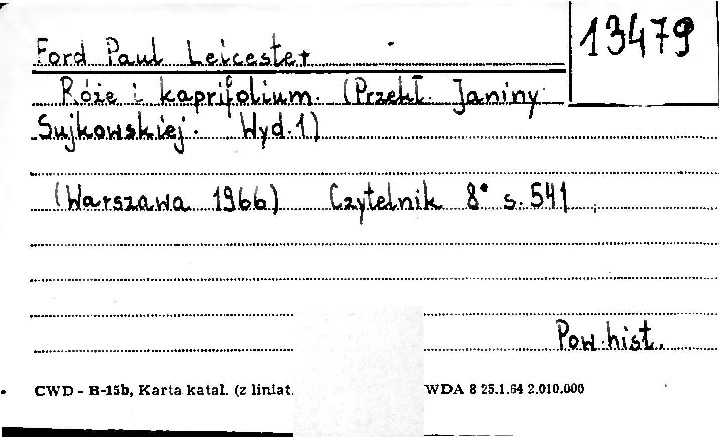 13479
Ford Paul Leicester
Róże i kaprifolium. (Przekł. Janiny
Sujkowskiej. Wyd.1)
(Warszawa 1966) Czytelnik 8° s. 541
Pow. hist.
CWD - B-15b, Karta katal. (z liniat. WDA 8 25.1.64 2.010.000